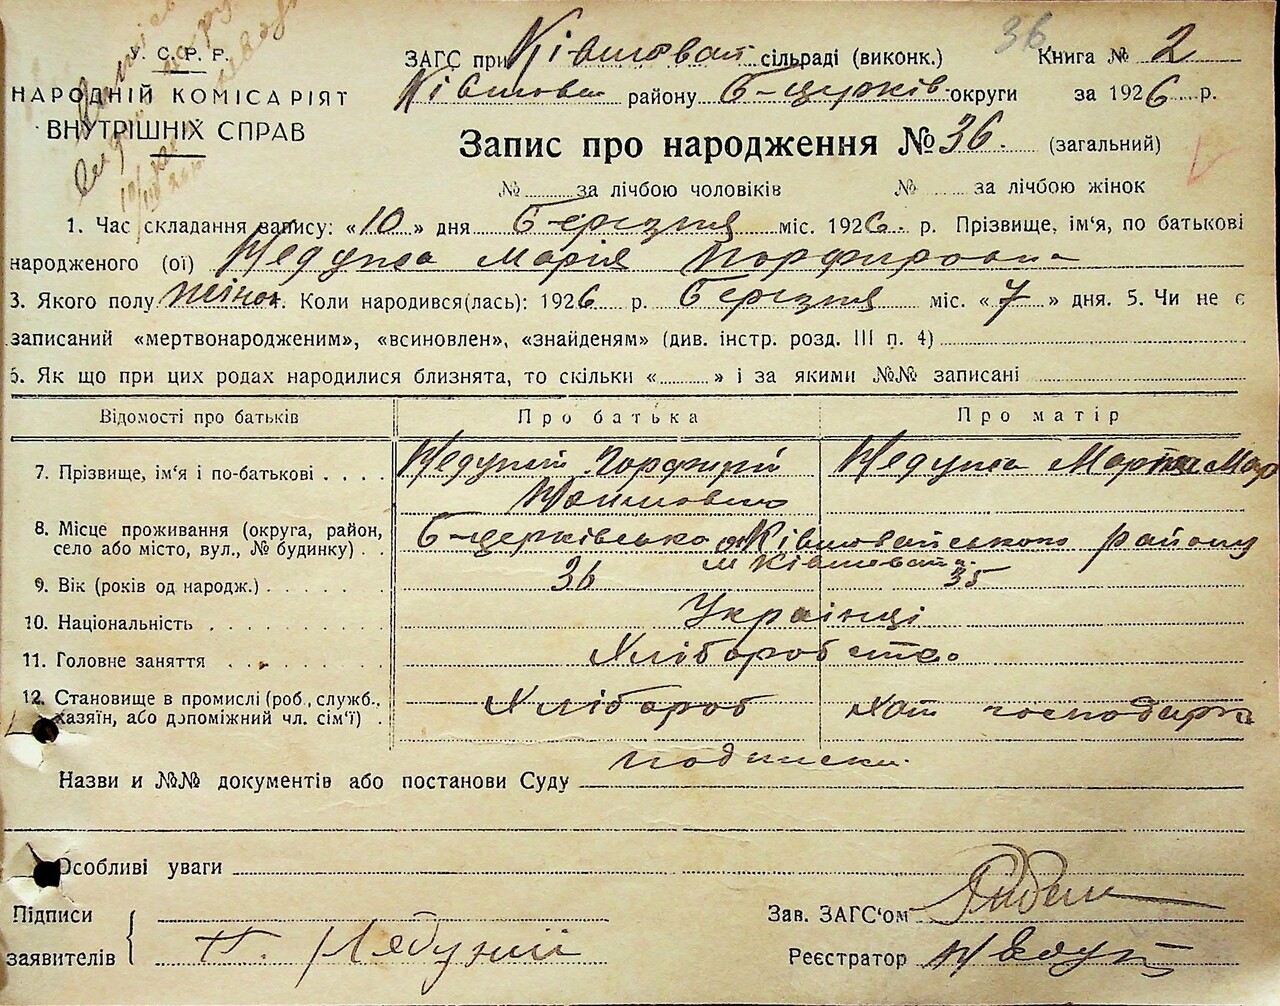 У. С. Р. Р.
НАРОДНІЙ КОМІСАРІЯТ
ВНУТРІШНІХ СПРАВ
36
ЗАГС при Ківшоват сільраді (виконк.) Книга № 2
Ківшов району Б-церків округи за 1926 р.
Запис про народження № 36. (загальний)
№ за лічбою чоловіків № за лічбою жінок
1. Час складання запису: «10» дня Березня міс. 1926. р. Прізвище, ім'я, по батькові
народженого (ої) Марія Порфировна
3. Якого полу жіноч. Коли народився(лась): 1926 р. Березня міс. «7» дня. 5. Чи не є
записаний «мертвонародженим», «всиновлен», «знайденям» (див. інстр. розд. III п. 4)
6. Як що при цих родах народилися близнята, то скільки « » і за якими №№ записані
Відомості про батьків Про батька Про матір
7. Прізвище, ім'я і по-батькові . . . . Порфирій Марта
8. Місце проживання (округа, район, село або місто, вул., № будинку) . . Б-церківсько Ківшоватського району
м Ківшовата.
9. Вік (років од народж.) . . . . . . 36 35
10. Національність . . . . . . . . . Українці
11. Головне заняття . . . . . . . . Хліборобство
12. Становище в промислі (роб., служб., хазяїн, або допоміжний чл. сім'ї) . Хлібороб Хат господарка
Назви и №№ документів або постанови Суду подписка.
Особливі уваги
Підписи
заявителів П.
Зав. ЗАГС'ом
Реєстратор